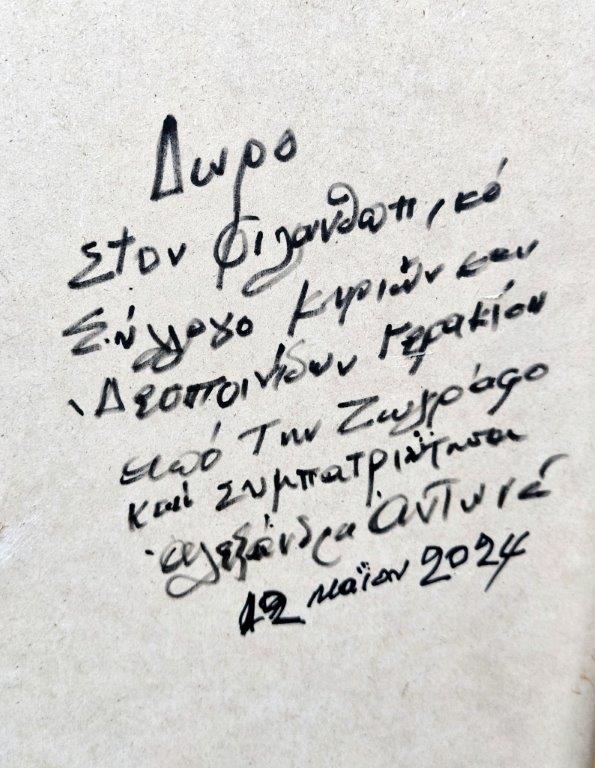 Δωρο
στον φιλανθωπικό
Σύλλογο κυριών και
Δεσποινίδων Γερακίου
από την Ζωγράφο
και συμπατριώτησα
αλεξάνδρα Αντωνά
12 μαΐου 2024